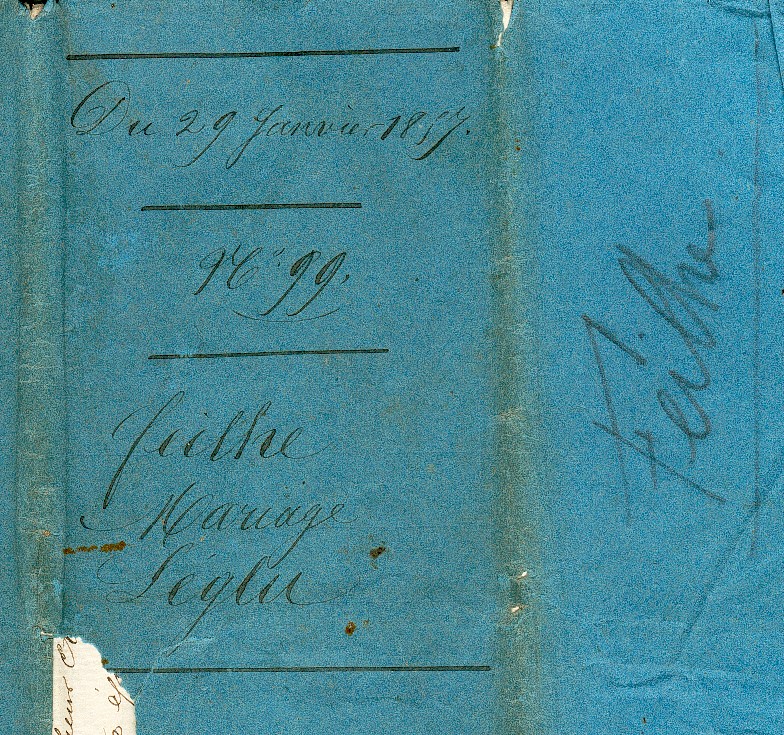 Du 29 Janvier 1857.
N° 99.
Feilhe
Mariage
Séglu
Feilhe